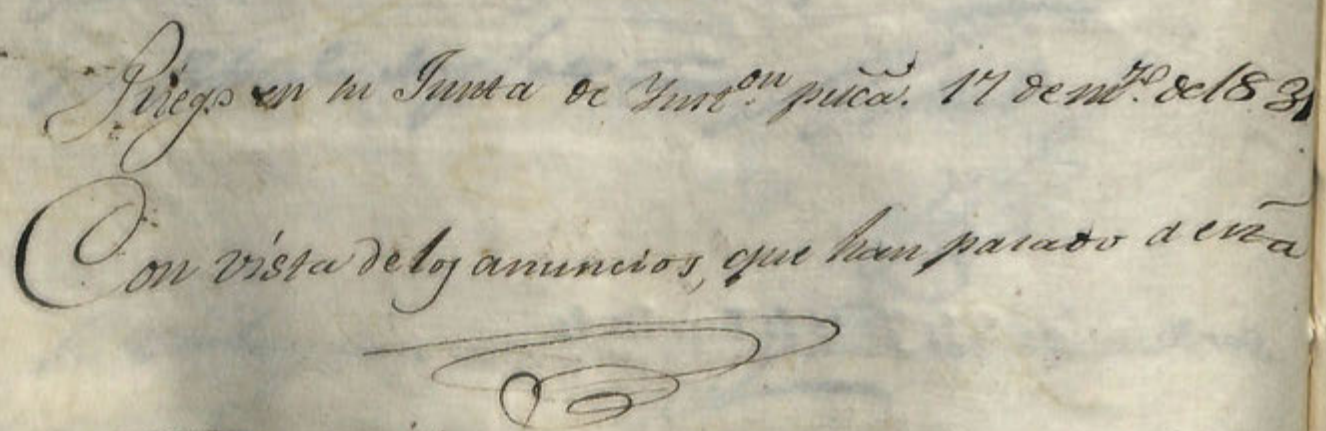 Priego en su Junta de Ynst.on pu͠ca. 17 de m.zo de 1831
Con vista de los anuncios, que han pasado a esta